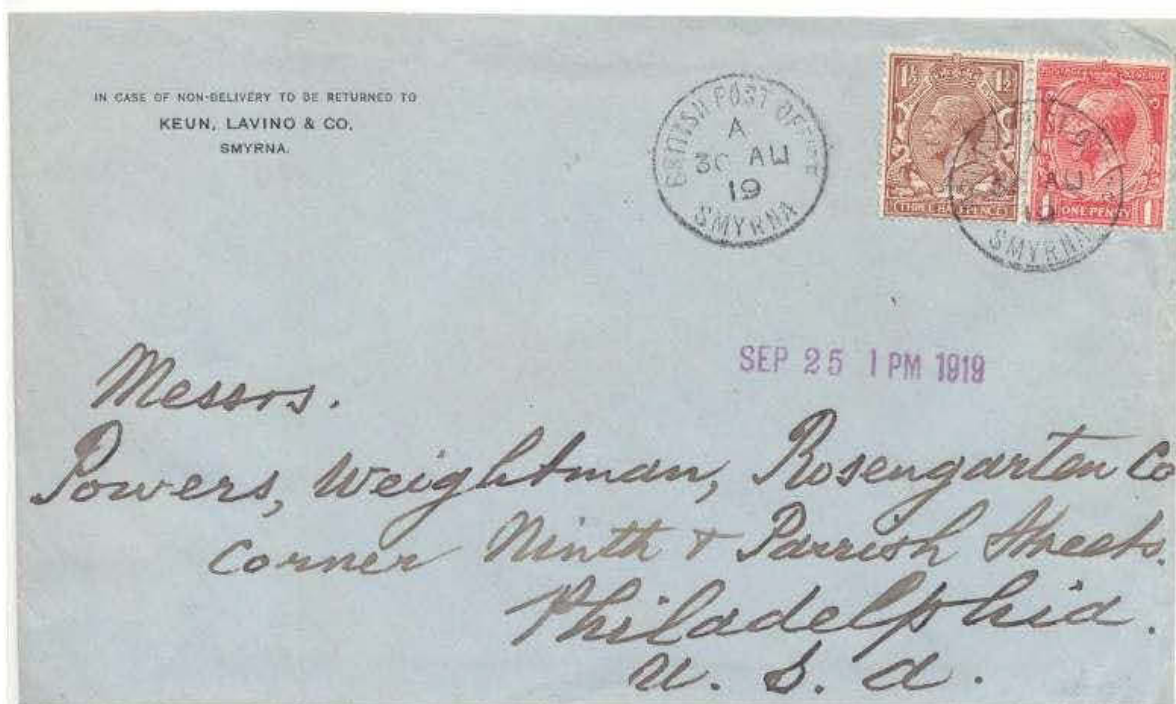 IN CASE OF NON-DELIVERY TO BE RETURNED TO
KEUN, LAVINO & CO.
SMYRNA.
BRITISH POST OFFICE
A
30 AU
19
SMYRNA
1½ 1½
THREE HALFPENCE
1 ONE PENNY 1
AU
SMYRNA
SEP 25 1 PM 1919
Messrs.
Powers, Weightman, Rosengarten Co
Corner Ninth & Parrish Streets.
Philadelphia.
U. S. A.